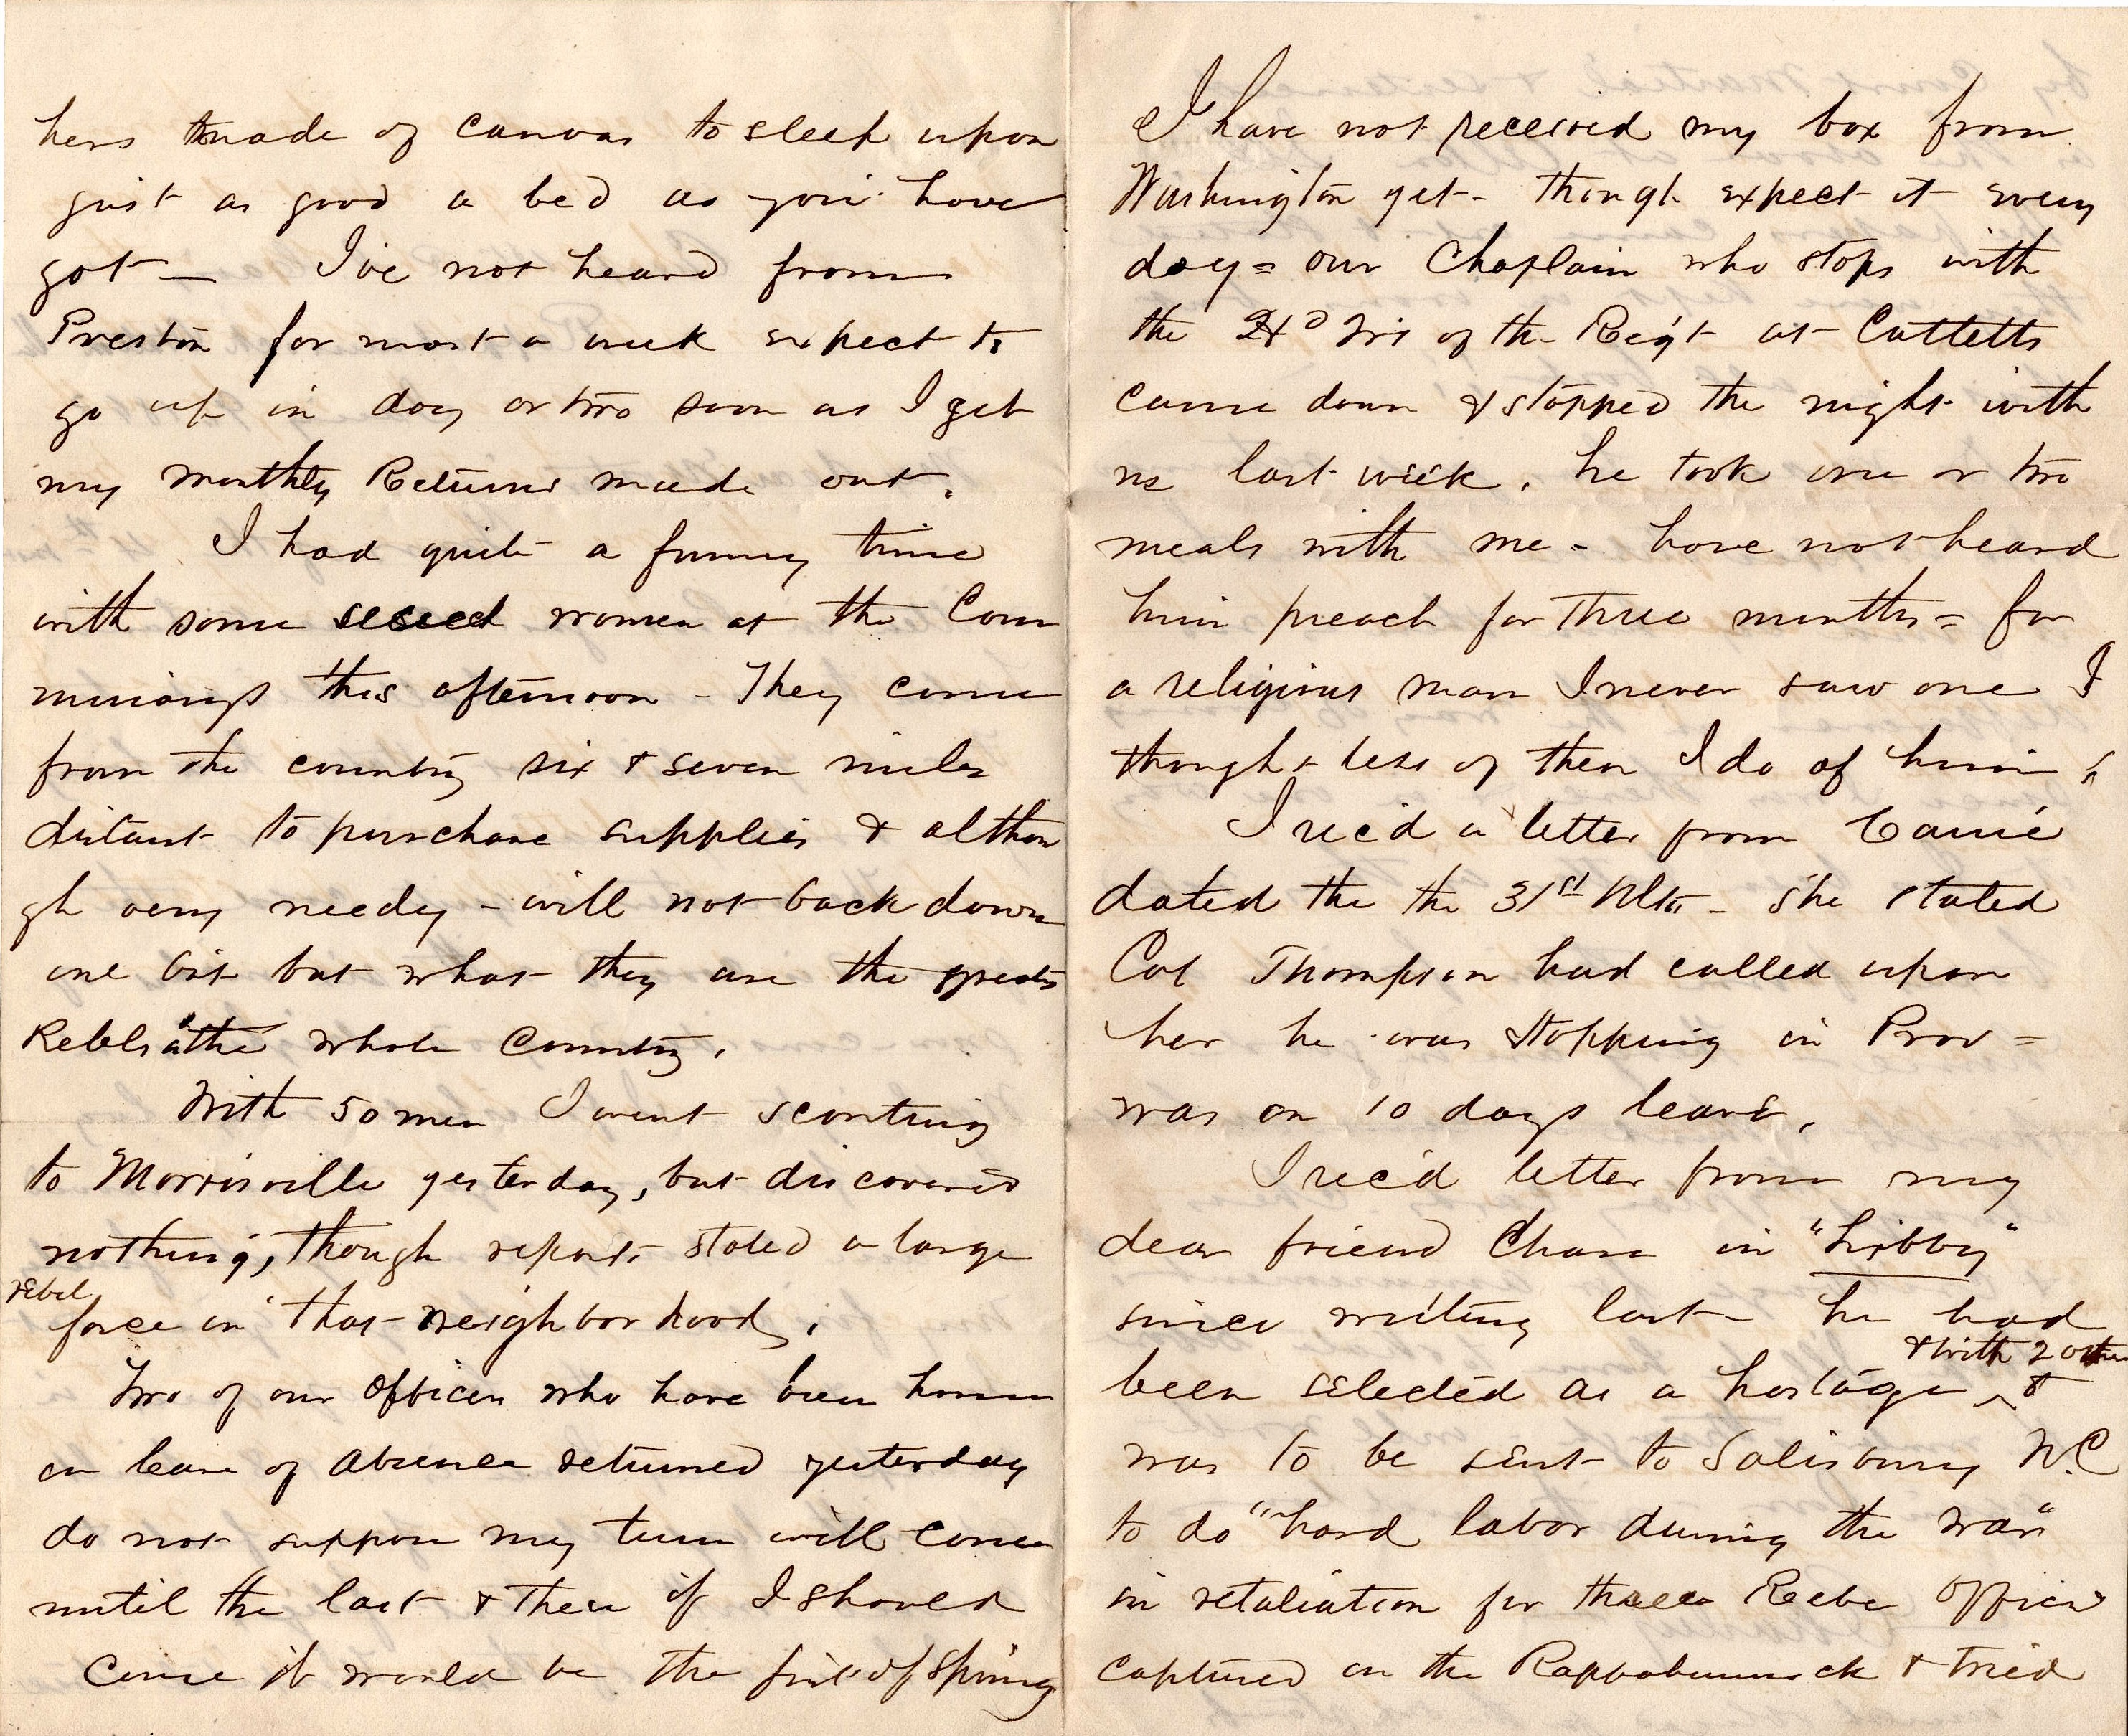 hers made of canvas to sleep upon
just as good a bed as you have
got – I've not heard from
Preston for most a week expect to
go up in day or two soon as I get
my monthly Returns made out.
I had quite a funny time
with some secech women at the Com
misary's this afternoon – They come
from the country six & seven miles
distant to purchase supplies & althou
gh very needy – will not back down
one bit but what they are the greats
Rebels in the whole Country.
With 50 men I went scouting
to Morrisville yesterday, but discovered
nothing, though reports stated a large
rebel
force in that neighborhood.
Two of our Officers who have been home
on leave of absence returned yesterday
do not suppose my turn will come
until the last & then if I should
come it would be the first of Spring
I have not received my box from
Washington yet – though expect it every
day = our Chaplain who stops with
the 2d Drs of the Reg't at Cattletts
came down & stopped the night with
us last week. he took one or two
meals with me – have not heard
him preach for three months = for
a religious man I never saw one I
thought less of then I do of him.
I rec'd a letter from Carrie
dated the the 31st Ulto – she stated
Col Thompson had called upon
her he was stopping in Prov =
was on 10 days leave.
I rec'd letter from my
dear friend Chase in "Libby"
since writing last – he had
& with 2 other
been selected as a hostage &
was to be sent to Salisbury N.C
to do "hard labor during the war"
in retaliation for three Rebe Officers
captured on the Rappahannock & tried